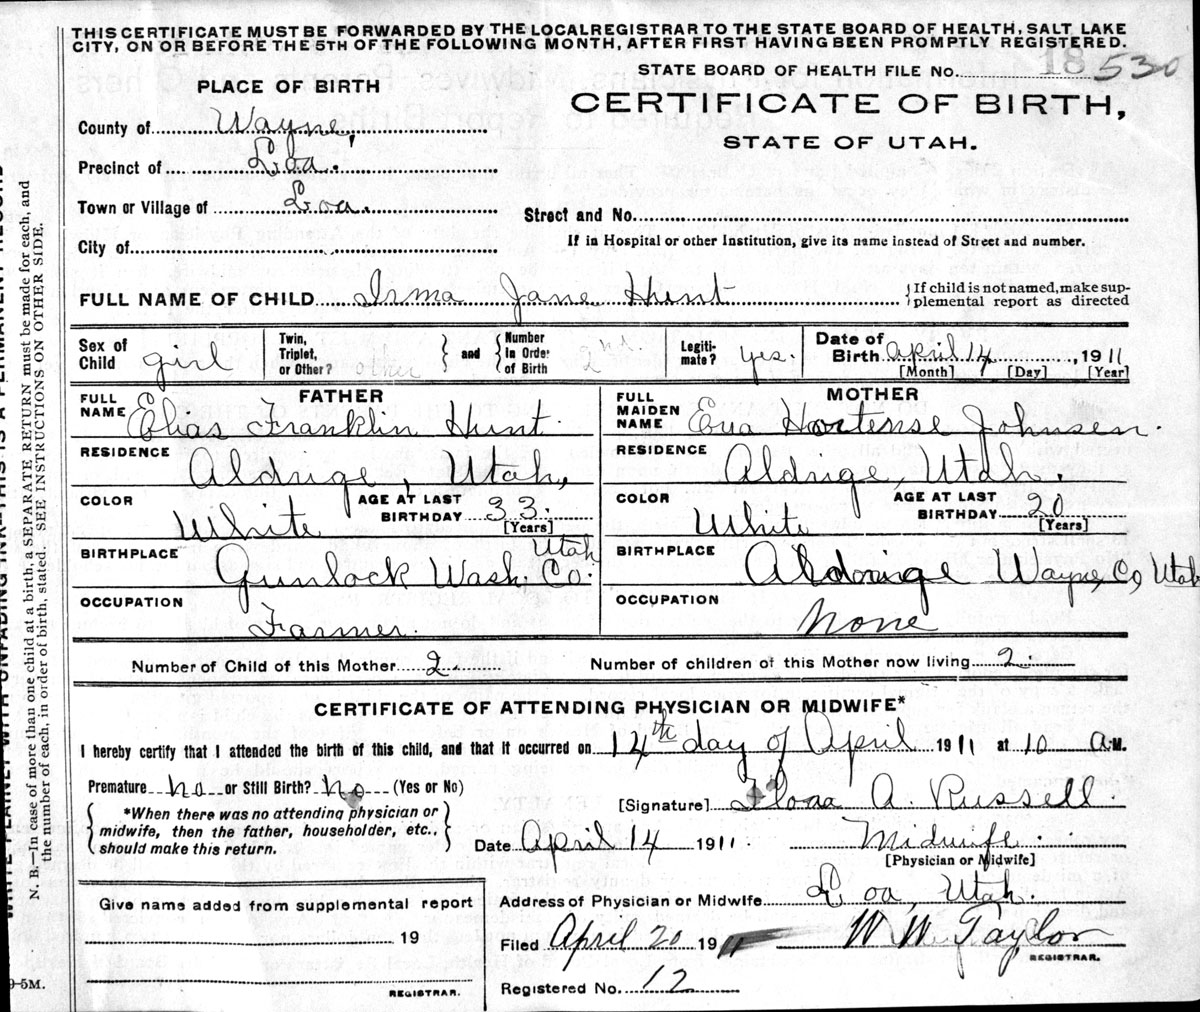 THIS CERTIFICATE MUST BE FORWARDED BY THE LOCAL REGISTRAR TO THE STATE BOARD OF HEALTH, SALT LAKE
CITY, ON OR BEFORE THE 5TH OF THE FOLLOWING MONTH, AFTER FIRST HAVING BEEN PROMPTLY REGISTERED.
STATE BOARD OF HEALTH FILE No. 18 530
PLACE OF BIRTH
CERTIFICATE OF BIRTH,
STATE OF UTAH.
County of Wayne,
Precinct of Loa.
Town or Village of Loa.
Street and No.
City of
If in Hospital or other Institution, give its name instead of Street and number.
FULL NAME OF CHILD Irma Jane Hunt
{If child is not named, make sup-
plemental report as directed
Sex of Child girl
Twin, Triplet, or Other? other
and
Number in Order of Birth 2nd.
Legiti-mate? yes.
Date of Birth April 14, 1911
[Month] [Day] [Year]
FATHER
FULL NAME Elias Franklin Hunt.
RESIDENCE Aldrige, Utah,
COLOR White
AGE AT LAST BIRTHDAY 33.
[Years]
BIRTHPLACE Gunlock Wash. Co. Utah
OCCUPATION Farmer.
MOTHER
FULL MAIDEN NAME Eva Hortense Johnsen.
RESIDENCE Aldrige, Utah.
COLOR White
AGE AT LAST BIRTHDAY 20
[Years]
BIRTHPLACE Aldrige Wayne, Co, Utah
OCCUPATION None
Number of Child of this Mother 2.
Number of children of this Mother now living 2.
CERTIFICATE OF ATTENDING PHYSICIAN OR MIDWIFE*
I hereby certify that I attended the birth of this child, and that it occurred on 14th day of April 1911 at 10 A.M.
Premature no or Still Birth? No (Yes or No)
{*When there was no attending physician or
midwife, then the father, householder, etc.,
should make this return.}
[Signature] Flora A. Russell.
Date April 14 1911.
Midwife.
[Physician or Midwife]
Give name added from supplemental report
19
REGISTRAR.
Address of Physician or Midwife Loa, Utah.
Filed April 20 1911
W W Taylor
REGISTRAR.
Registered No. 12
WRITE PLAINLY WITH UNFADING INK—THIS IS A PERMANENT RECORD
N. B.—In case of more than one child at a birth, a SEPARATE RETURN must be made for each, and
the number of each, in order of birth, stated. SEE INSTRUCTIONS ON OTHER SIDE.
-5M.